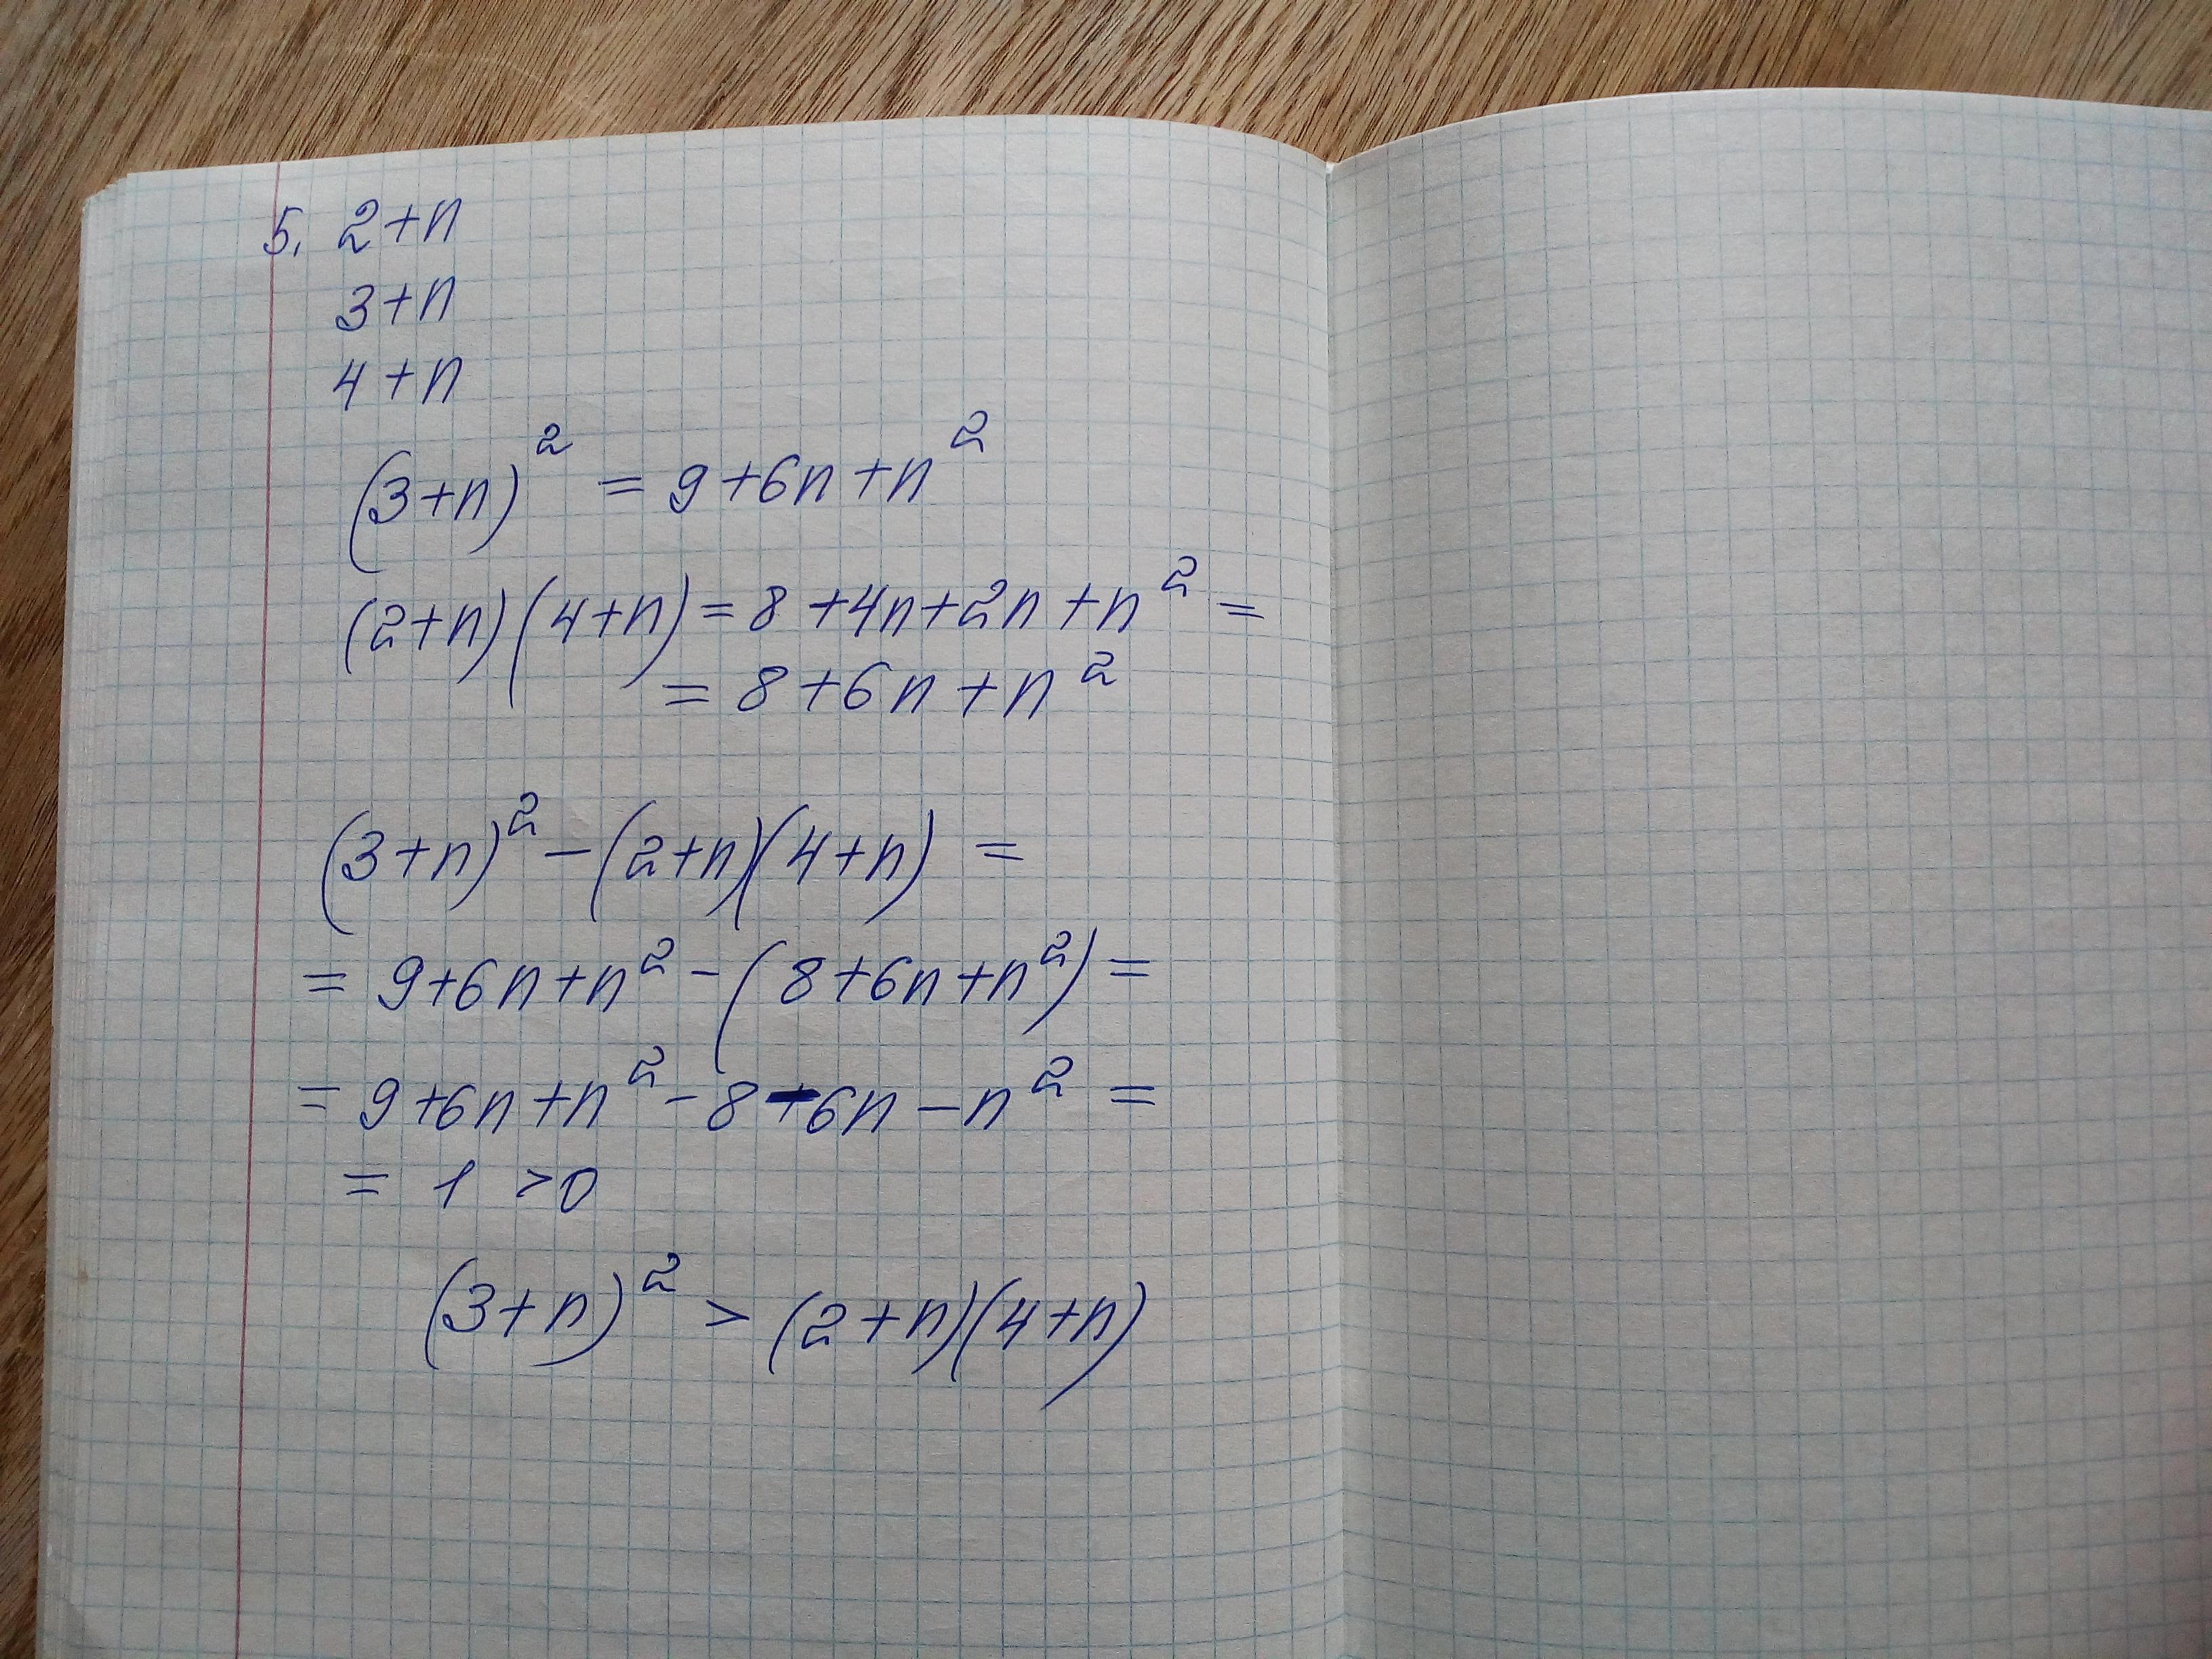 5. 2+n
3+n
4+n
(3+n)² = 9+6n+n²
(2+n)(4+n)=8+4n+2n+n²=
=8+6n+n²
(3+n)²-(2+n)(4+n)=
= 9+6n+n²-(8+6n+n²)=
= 9+6n+n²-8-6n-n²=
= 1 >0
(3+n)² > (2+n)(4+n)